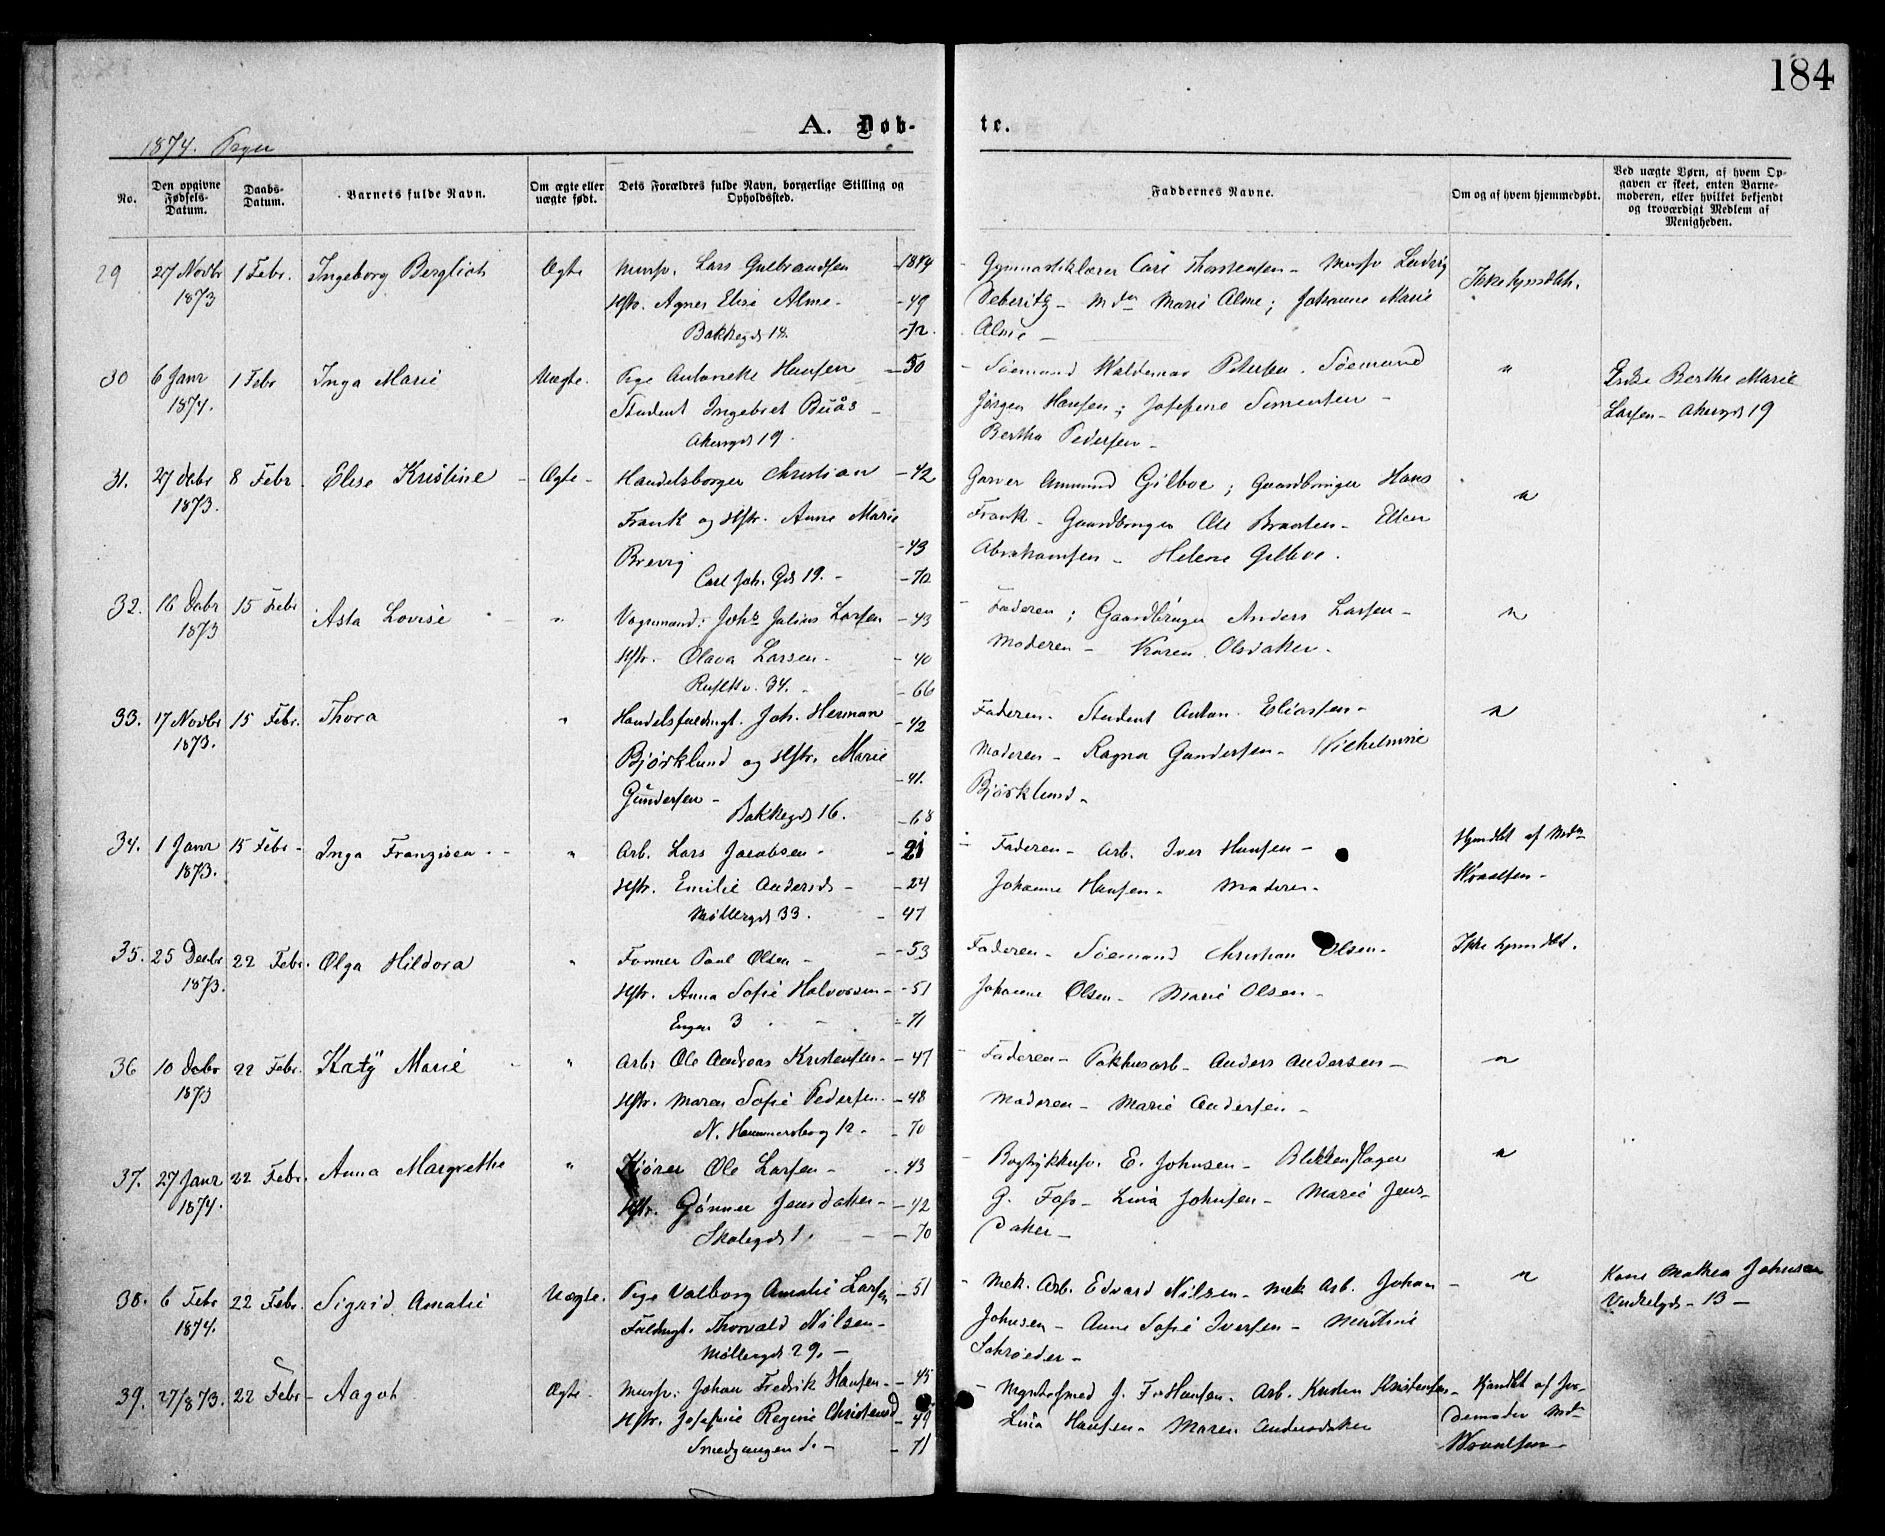 184
A. Døb-
te.
1874. Piger
No.
Den opgivne Fødsels-Datum.
Daabs-Datum.
Barnets fulde Navn.
Om ægte eller uægte født.
Dets Forældres fulde Navn, borgerlige Stilling og Opholdssted.
Faddernes Navne.
Om og af hvem hjemmedøbt.
Ved uægte Børn, af hvem Op-
gaven er skeet, enten Barne-
moderen, eller hvilket bekjendt
og troværdigt Medlem af
Menigheden.
29 27 Novbr 1 Febr. Ingeborg Bergliot Ægte Mursv. Lars Gulbrandsen - 1849
1873 Hstr. Agnes Elise Alme - - 49
Bakkegd 18. - 72.
Gymnastiklærer Carl Thorstensen - Mursv Ludvig
Marie Alme; Johanne Marie
Alme -
Ikke hjmdbt.
30 6 Janr 1 Febr Inga Marie Uægte. Pige Antonette Hansen - 50
1874. Student Ingebret Buås -
Akersgd 19.
- Søemand Waldemar Petersen. Søemand
Jørgen Hansen; Josefine Simensen -
Bertha Pedersen -
"
Enke Berthe Marie
Larsen - Akersgd 19
31. 27 Debr 8 Febr. Elise Kristine - Ægte - Handelsborger Christian - 42
1873. Frank og Hstr. Anne Marie
Brevig - 43
Carl Joh. Gd 19. - - 70
Garver Ammund Gilboe; Gaardbruger Hans
Frank - Gaardbruger Ole Braaten - Ellen
Abrahamsen - Helene Gilboe.
"
32. 16 Debr 15 Febr Asta Lovise " Vognmand: Johs Julius Larsen - 43
1873 Hstr. Olava Larsen - - 40
34. - 66
- Faderen; Gaardbruger Anders Larsen -
Moderen - Karen Olsdatter -
"
33. 17 Novbr 15 Febr. Thora " Handelsfuldmgt. Joh. Herman - 42
1873. Bjørklund og Hstr. Marie - 41.
Gundersen -
Bakkegd 16. - 68
Faderen - Student Anton Eliassen -
Moderen - Ragna Gundersen - Wilhelmine
Bjørklund -
"
34. 1 Janr 15 Febr - Inga Franzisca " Arb. Lars Jacobsen - - 21
1873. Hstr. Emilie Andersd - - 24
Møllergd 33. - 47
- Faderen - Arb. Iver Hansen -
Johanne Hansen - Moderen -
Hjmdbt af
35. 25 Decbr 22 Febr. Olga Hildora " Former Paul Olsen - - 53
1873. Hstr. Anna Sofie Halvorsen - - 51
Engen 3 - 71
Faderen - Søemand Christian Olsen -
Johanne Olsen - Marie Olsen -
Ikke hjmdbt.
36 10 Debr 22 Febr. Katy Marie " Arb. Ole Andreas Kristensen - - 47
1873 Hstr. Maren Sofie Pedersen - - 48
N. Hammersborg 12. - 70
- Faderen - Pakhusarb - Anders Andersen -
Moderen - Marie Andersen -
"
37. 27 Janr 22 Febr. Anna Margrethe " Kjører Ole Larsen - - 43
1874. Hstr. Gønner Jensdatter - - 42
Skolegd 1. - 70
- Bogtrykkersv. E. Johnsen - Blikkenslager
G. Foss - Lina Johnsen - Marie Jens-
datter -
"
38. 6 Febr 22 Febr. Sigrid Amalie Uægte. Pige Valborg Amalie Larsen - 51
1874. Fuldmgt. Thorvald Nilsen -
Møllergd 29. -
- Mek. Arb. Edvard Nilsen - Mek Arb. Johan
Johnsen - Anne Sofie Iversen -
Schrøder -
"
Kone Mathea Johnsen
- 13 -
39. 27/8 73. 22 Febr - Aagot Ægte - Mursv: Johan Fredrik Hansen - - 45
Hstr. Josefine Regine Christensd - 49
Smedgangen - 71
- J. Fr Hansen. Arb. Kristen Kristensen -
Lina Hansen - Maren Andersdatter
Hjmdbt af Jor-
demoder